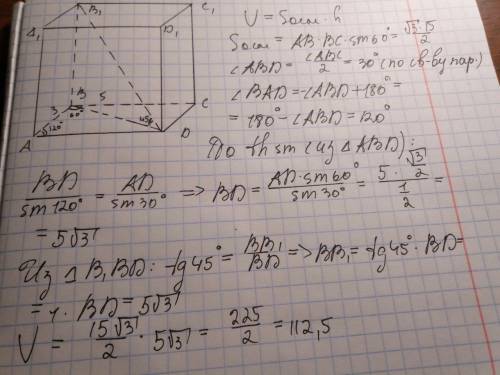 B₁ C₁
A₁ D₁
V = Sосн · h
Sосн = AB · BC · sin 60° = √3 · 15 / 2
∠ABD = ∠ABC / 2 = 30° (по св-ву пар.)
∠BAD = -∠ABD + 180° =
= 180° - ∠ABD = 120°
По th sin (из △ABD):
B
3 60° 5 C
120° 45°
A D
BD / sin 120° = AD / sin 30° => BD = AD · sin 60° / sin 30° = 5 · √3/2 / 1/2 =
= 5√3
Из △ B₁BD: tg 45° = BB₁ / BD => BB₁ = tg 45° · BD =
= 1 · BD = 5√3
V = 15√3 / 2 · 5√3 = 225 / 2 = 112,5